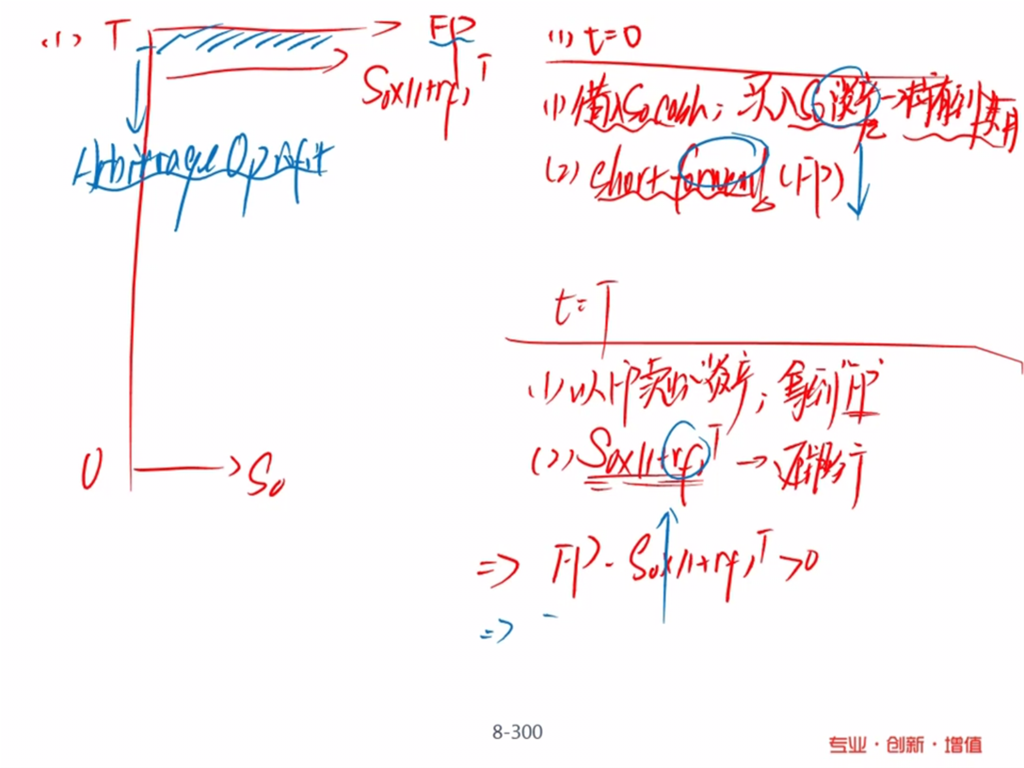 (1) T FP
S₀×(1+rf)^T
Arbitrage Opp
0 S₀
(1) t=0
(1) 借入 S₀ cash; 买入 S₀ 资产 → 持有到
(2) short forward (FP)
t=T
(1) 以FP卖出资产; 拿到"FP"
(2) S₀×(1+rf)^T → 还银行
=> FP - S₀×(1+rf)^T >0
=> -
8-300
专业·创新·增值